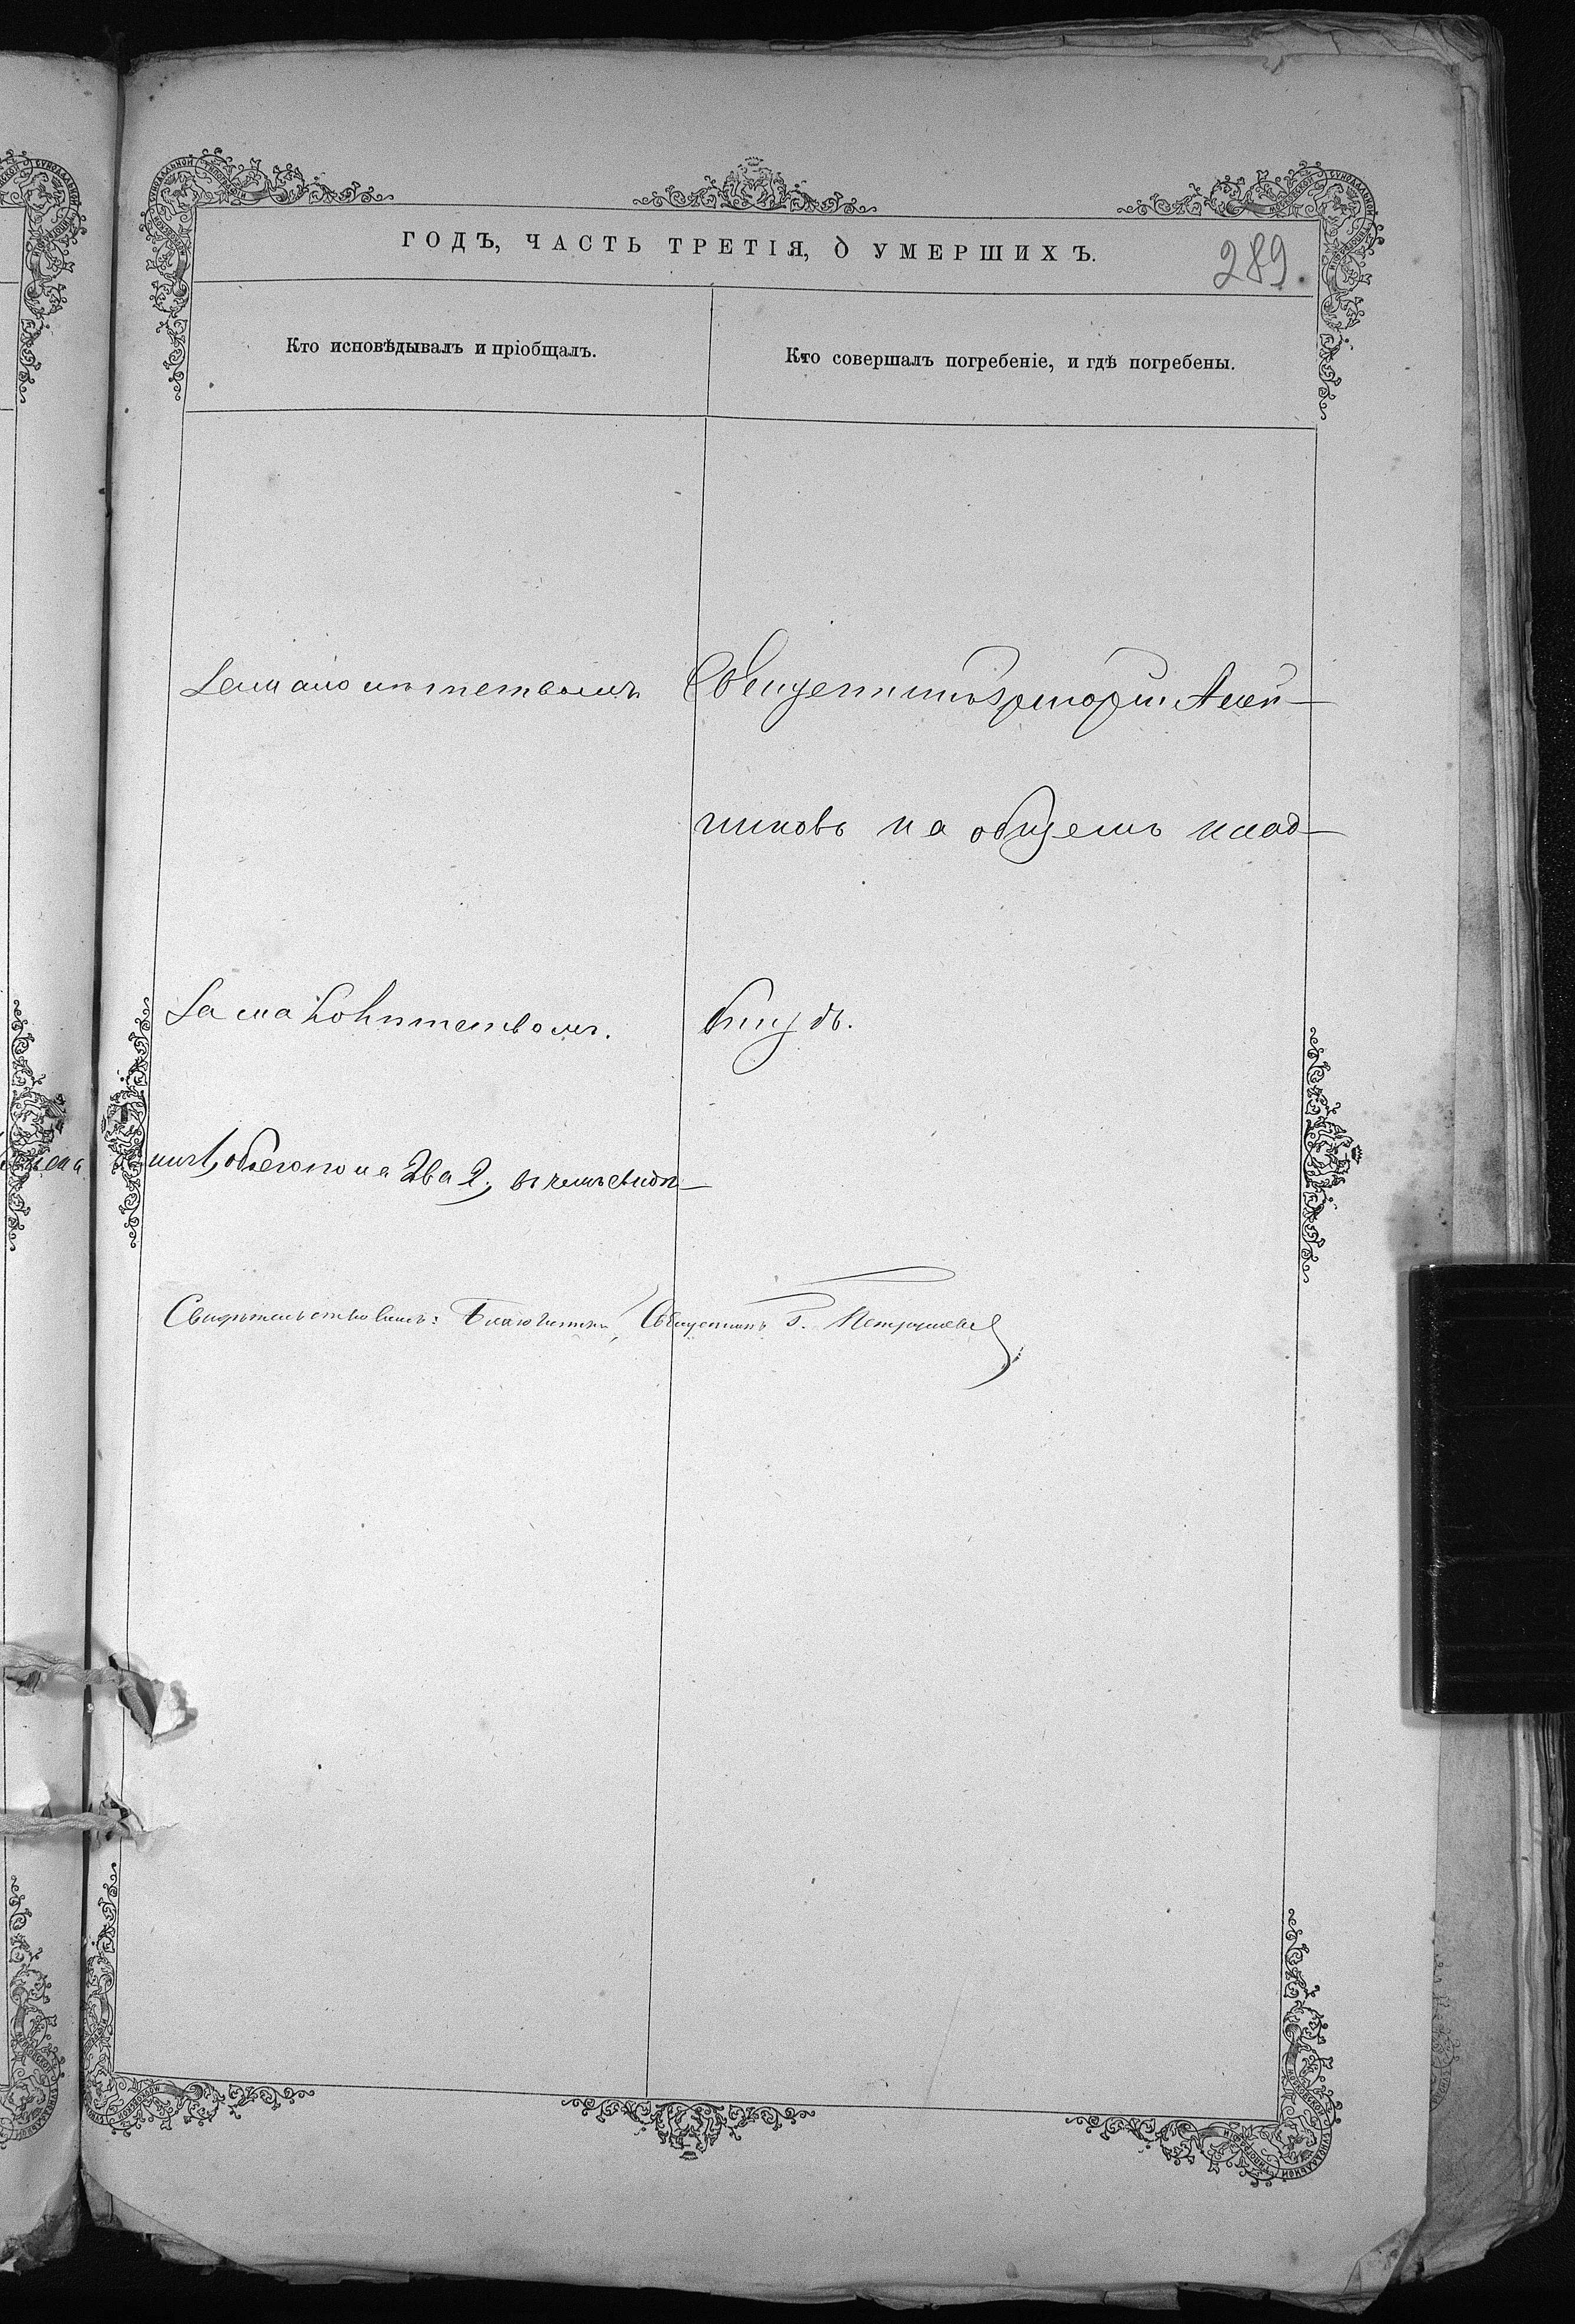 ГОДЪ, ЧАСТЬ ТРЕТІЯ, О УМЕРШИХЪ.
289
Кто исповѣдывалъ и пріобщалъ.
Кто совершалъ погребеніе, и гдѣ погребены.
За малолѣтствомъ
Священникъ Григорій Алей-
никовъ на общемъ клад-
За малолѣтствомъ.
бищѣ.
обоего пола два 2, въ чемъ свидѣ-
Свидѣтельствовалъ: Благочинный, Священникъ Г. Петрушевъ